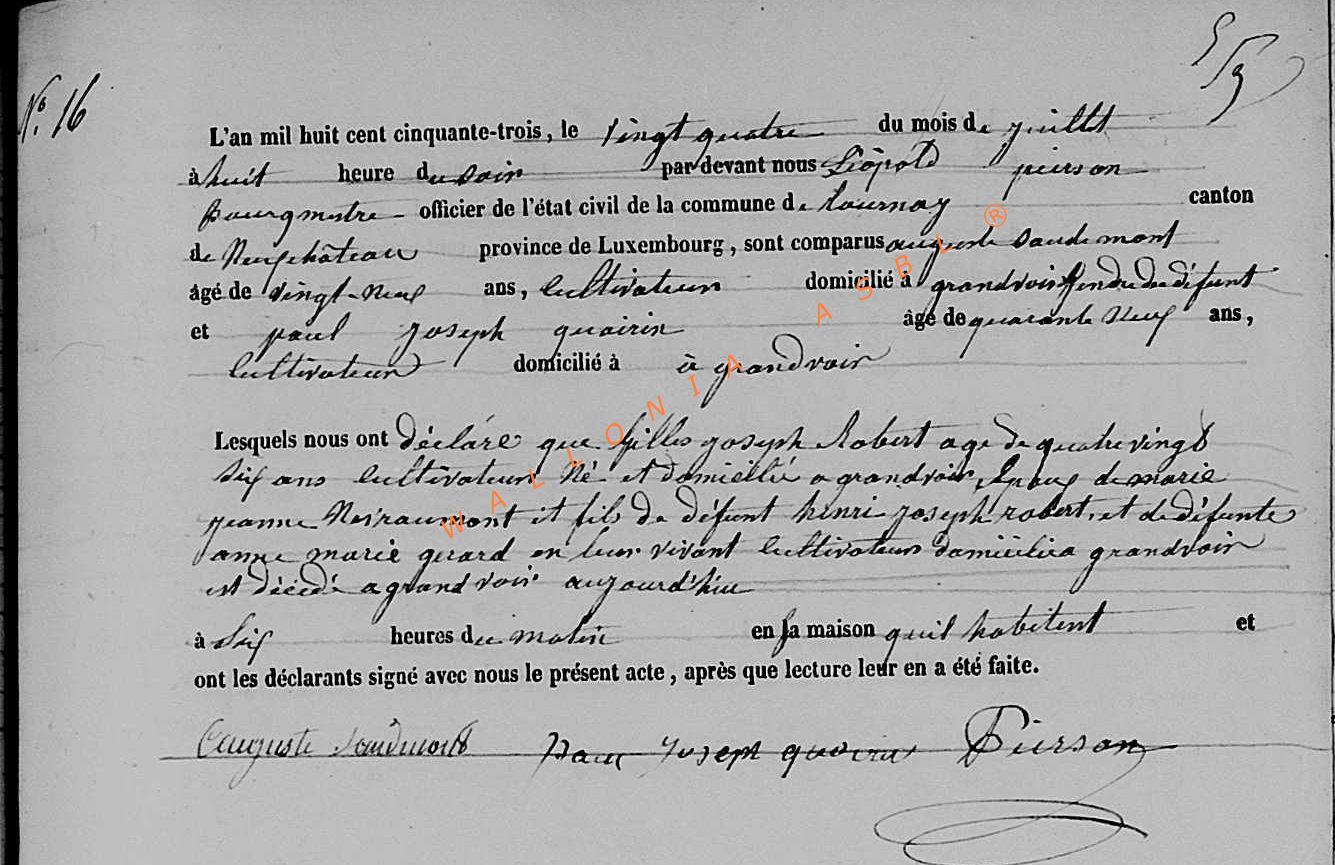 N.° 16
L'an mil huit cent cinquante-trois, le vingt quatre du mois de juillet
à huit heure du soir par devant nous Léopold pierson
Bourgmestre officier de l'état civil de la commune de tournay canton
de Neufchâteau province de Luxembourg, sont comparus auguste Saudemont
âgé de vingt-neuf ans, cultivateur domicilié à grandvoir gendre du défunt
et paul joseph quoirin âgé de quarante neuf ans,
cultivateur domicilié à à grandvoir
Lesquels nous ont déclaré que gilles joseph Robert age de quatre vingt
six ans cultivateur Né et domicilié a grandvoir, Epoux de marie
jeanne Noiraumont et fils de défunt henri joseph robert, et de défunte
anne marie gerard en leur vivant cultivateurs domicilié a grandvoir
est décédé a grandvoir aujourd'hui
à six heures du matin en sa maison qu'il habitent et
ont les déclarants signé avec nous le présent acte, après que lecture leur en a été faite.
auguste Saudemont paul Joseph quoirin Pierson
WALLONIA ASBL ®